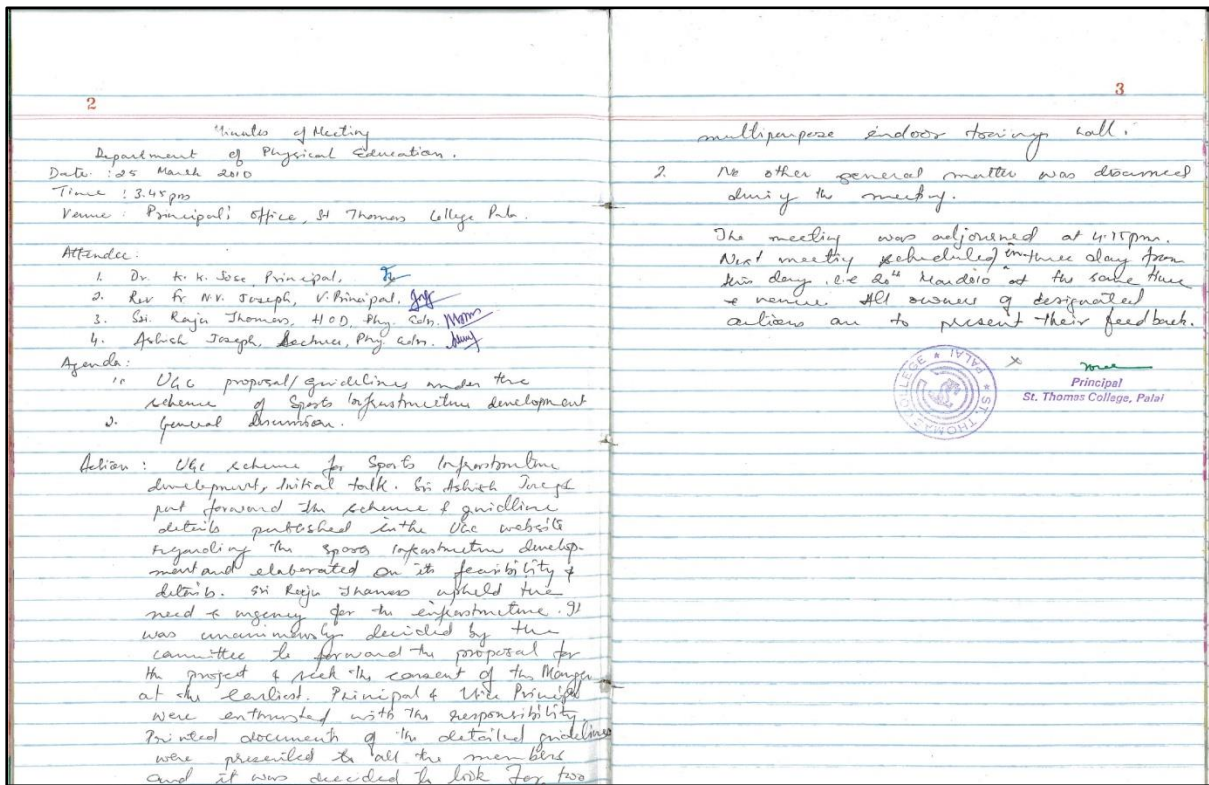 2
Minutes of Meeting
Department of Physical Education.
Date : 25 March 2010
Time : 3.45 pm
Venue : Principal's office, St Thomas College Pala.
Attendee:
1. Dr. K. K. Jose, Principal,
2. Rev Fr N.V. Joseph, V. Principal,
3. Sri. Raju Thomas, HOD, Phy. Edn.
4. Ashish Joseph, Lecturer, Phy Edn.
Agenda:
1. UGC proposal/guidelines under the
scheme of Sports Infrastructure development
2. General discussion.
Action : UGC scheme for Sports Infrastructure
development, Initial talk. Sri Ashish Joseph
put forward the scheme & guidline
details published in the UGC website
regarding the sports infrastructure develop-
ment and elaborated on its feasibility &
details. Sri Raju Thomas upheld the
need & urgency for the infrastructure. It
was unanimously decided by the
committee to forward the proposal for
the project & seek the consent of the Manger
at the earliest. Principal & Vice Principal
were enthrusted with the responsibility.
Printed documents of the detailed guidelines
were presented to all the members
and it was decided to look for two
3
multipurpose indoor training hall.
2. No other general matter was discussed
during the meeting.
The meeting was adjourned at 4.15pm.
Next meeting scheduled in three day from
this day i.e at the same time
& venue. All owner of designated
actions are to present their feedback.
ST. THOMAS COLLEGE * PALAI *
Principal
St. Thomas College, Palai